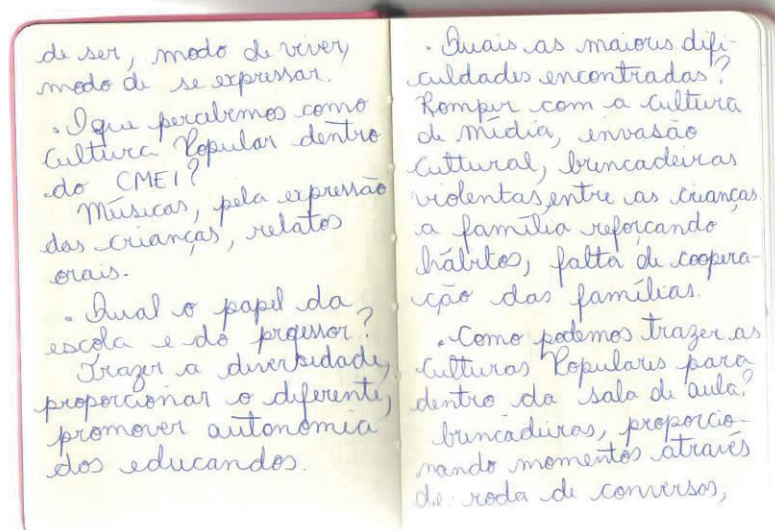 de ser, modo de viver,
modo de se expressar.
. O que percebemos como
Cultura Popular dentro
do CMEI?
Músicas, pela expressão
das crianças, relatos
orais.
. Qual o papel da
escola e do professor?
Trazer a diversidade,
proporcionar o diferente,
promover autonomia
dos educandos.
. Quais as maiores difi-
culdades encontradas?
Romper com a cultura
de mídia, invasão
cultural, brincadeiras
violentas entre as crianças.
a família reforçando
hábitos, falta de coopera-
ção das famílias.
. Como podemos trazer as
Culturas Populares para
dentro da sala de aula?
brincadeiras, proporcio-
nando momentos através
de roda de conversas,